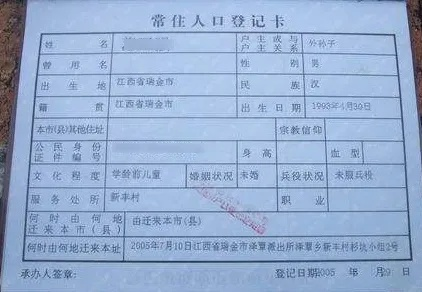 常住人口登记卡
姓名 户主或与户主关系 外孙子
曾用名 性别 男
出生地 江西省瑞金市 民族 汉
籍贯 江西省瑞金市 出生日期 1993年4月30日
本市(县)其他住址 宗教信仰
公民身份证件编号 身高 血型
文化程度 学龄前儿童 婚姻状况 未婚 兵役状况 未服兵役
服务处所 新丰村 职业
何时由何地迁来本市(县) 由迁来本市(县)
何时由何地迁来本址 2005年7月10日江西省瑞金市泽覃派出所泽覃乡新丰村杉坑小组2号
承办人签章: 登记日期:2005 年 月 日